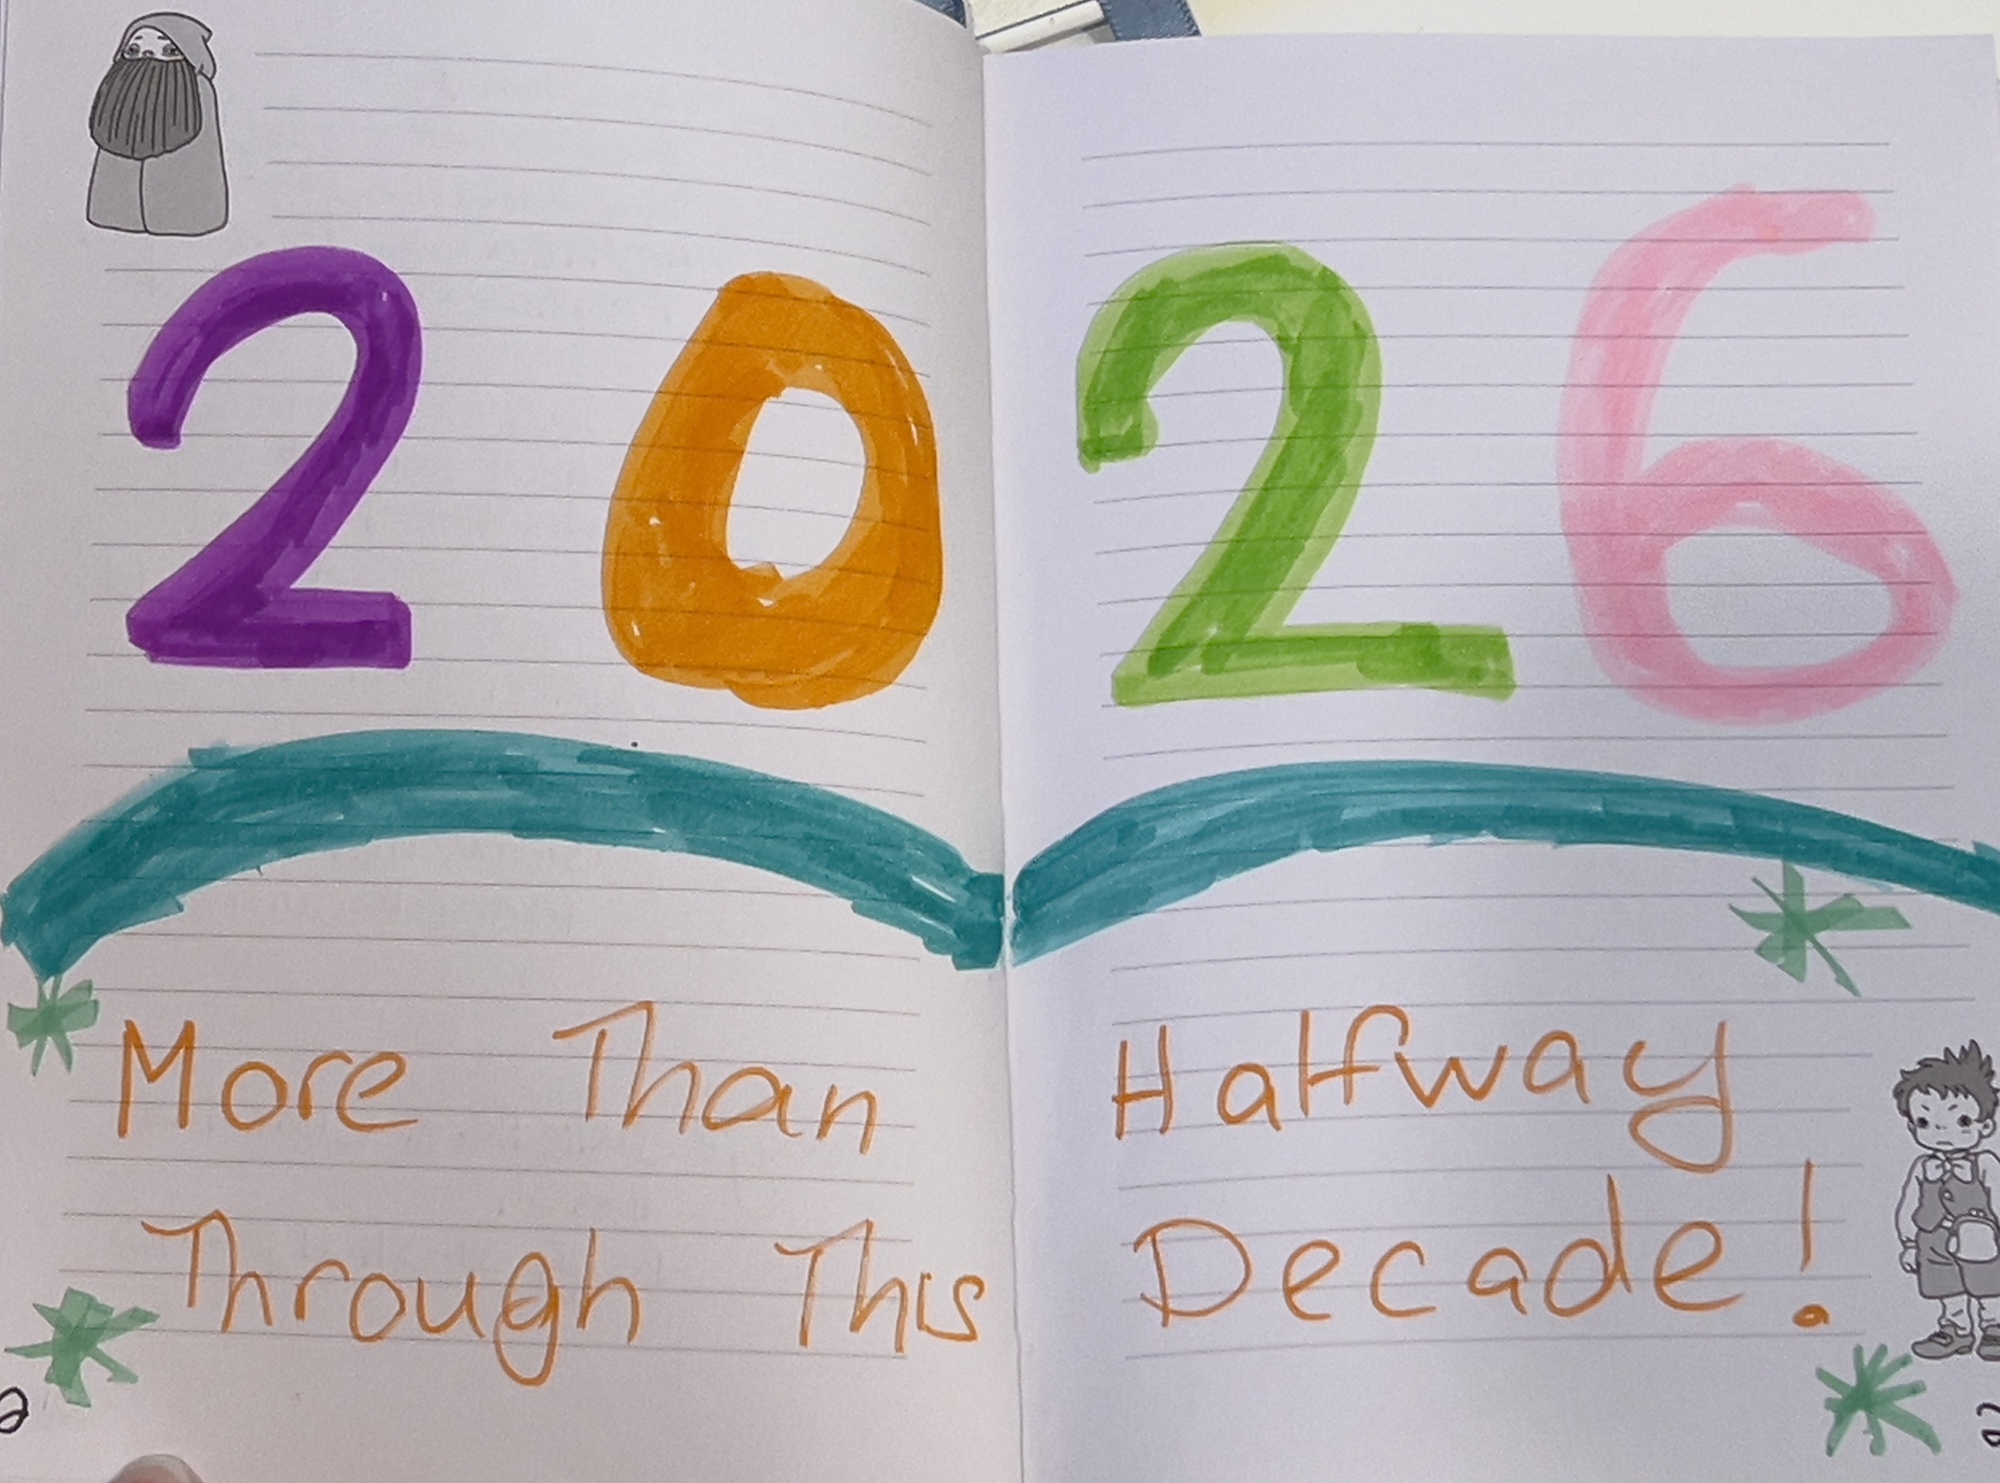 2026
More Than Halfway
Through This Decade!